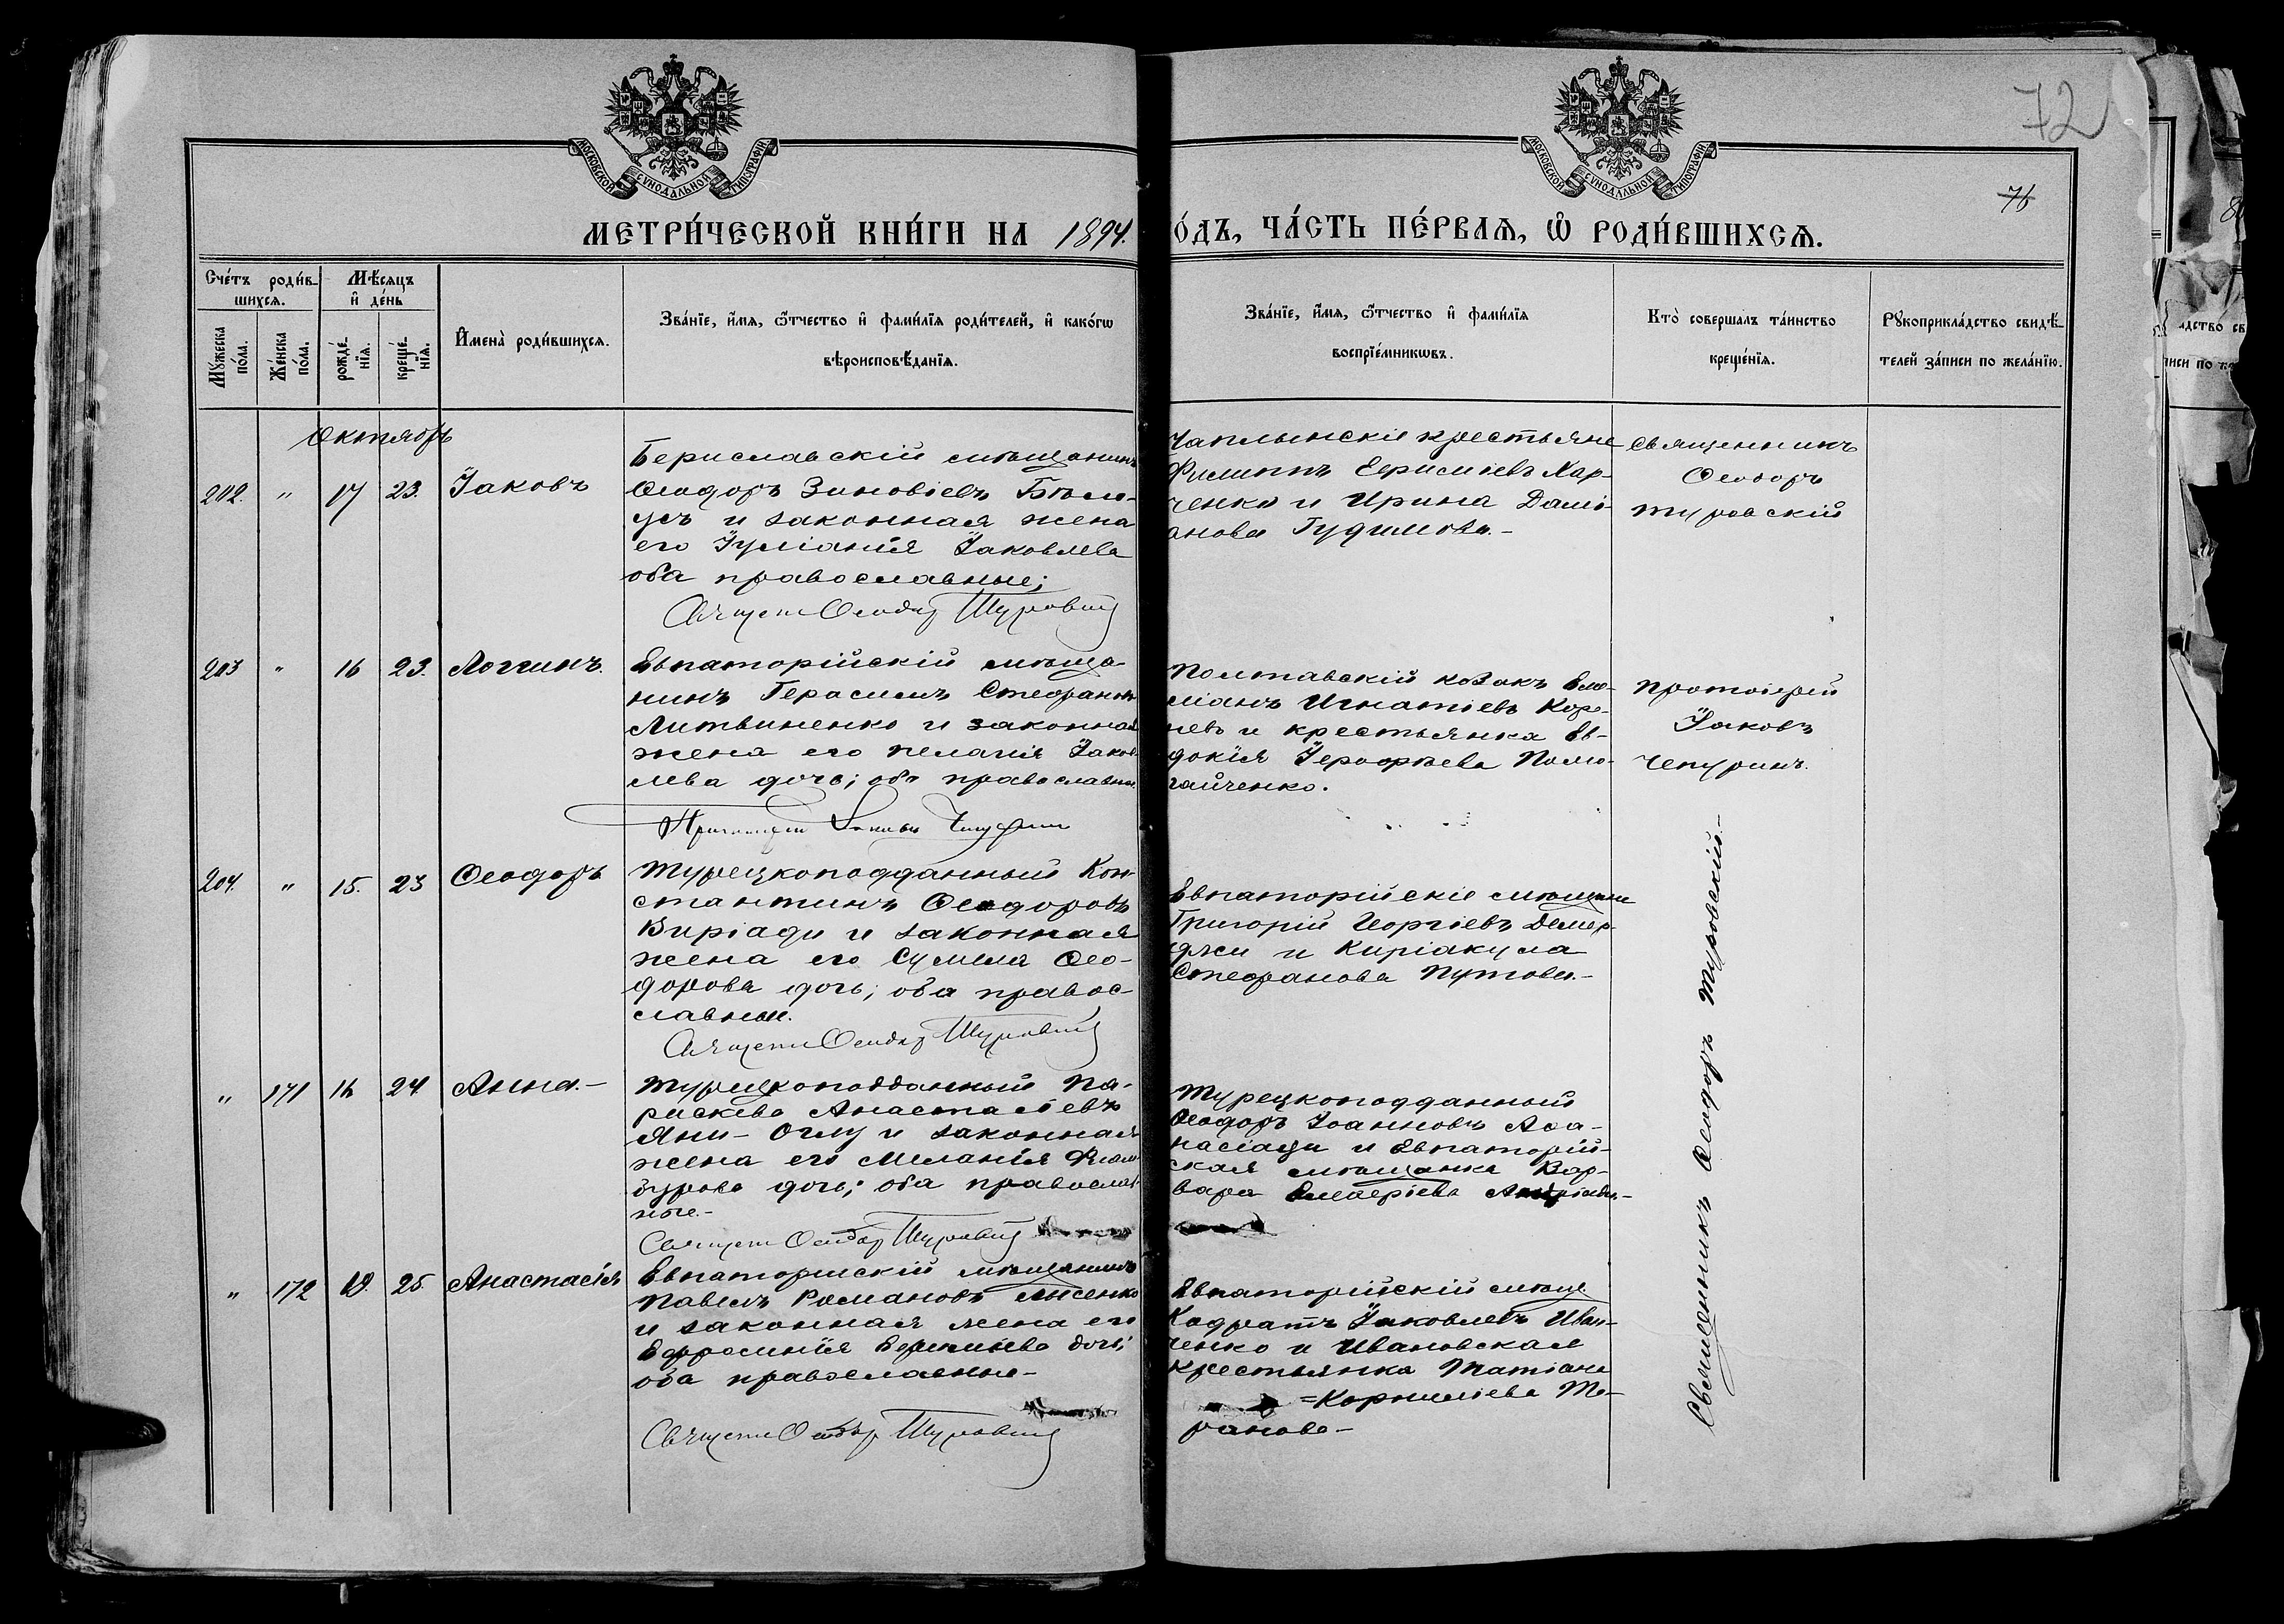 72
76
МОСКОВСКОЙ СУНОДАЛЬНОЙ ТИПОГРАФІИ
МОСКОВСКОЙ СУНОДАЛЬНОЙ ТИПОГРАФІИ
МЕТРИ́ЧЕСКОЙ КНИ́ГИ НА 1894.
О́ДЪ, ЧА́СТЬ ПЕ́РВАѦ, Ѡ҆ РОДИ́ВШИХСѦ.
Сче́тъ роди́в-
шихсѧ.
Мѣ́сѧцъ
и҆ де́нь
Мꙋ́жеска по́ла.
Же́нска по́ла.
рожде́нїѧ.
креще́нїѧ.
И҆мена̀ роди́вшихсѧ.
Зва́нїе, и҆́мѧ, ѻ҆́тчество и҆ фами́лїѧ роди́телей, и҆ како́гѡ
вѣроисповѣ́данїѧ.
Зва́нїе, и҆́мѧ, ѻ҆́тчество и҆ фами́лїѧ
воспрїе́мникѡвъ.
Кто̀ соверша́лъ та́инство
креще́нїѧ.
Рꙋкоприкла́дство свидѣ́-
телей за́писи по жела́нїю.
Октябрь
202. " 17 23. Іаковъ
Бериславскій мѣщанинъ
Ѳеодоръ Зиновіевъ
и законная жена
его Іуліанія Іаковлева
оба православные;
Священ Ѳеодор Туровскій
Чаплынскіе крестьяне
Филиппъ Ефимовъ Хар-
ченко и Ирина Дамі-
анова Гудимова.-
Священникъ
Ѳеодоръ
Туровскій
203 " 16 23. Логгинъ.
Евпаторійскій мѣща-
нинъ Герасимъ Стефановъ
Литвиненко и законная
жена его Пелагія Іаков
лева дочь; оба православн
Протоіерей Іаковъ Чепурин
Полтавскій козакъ Еме-
ліанъ Игнатіевъ Коре-
невъ и крестьянка Ев-
докія Іерофѣева
гайченко.
Протоіерей
Іаковъ
Чепуринъ.
204. " 15. 23 Ѳеодоръ
Турецкоподданный Кон-
стантинъ Ѳеодоровъ
Киріади и законная
жена его Сумела Ѳео-
дорова дочь; оба правос-
славные.
Священ Ѳеодор Туровскій
Евпаторійскіе мѣщане
Григорій Георгіевъ Демер-
джи и Киріакула
Стефанова Путова.-
" 171 16 24. Анна.-
Турецкоподданный Па-
раскева Анастасіевъ
Яни-Оглу и законная
жена его Меланія
дочь; оба православ-
ные.-
Священ Ѳеодор Туровскій
Турецкоподданный
Ѳеодоръ Іоанновъ Аѳа-
насіади и Евпаторій-
ская мѣщанка Вар-
вара
" 172 25. Анастасія
Евпаторійскій мѣщанинъ
Павелъ Романовъ Лысенко
и законная жена его
Ефросинія дочь;
оба православные-
Священ Ѳеодор Туровскій
Евпаторійскій мѣщ
Кодратъ Іаковлевъ Иван-
ченко и Ивановская
крестьянка Татіана
=Корниліева Та-
ранова-
Священникъ Ѳеодоръ Туровскій.-